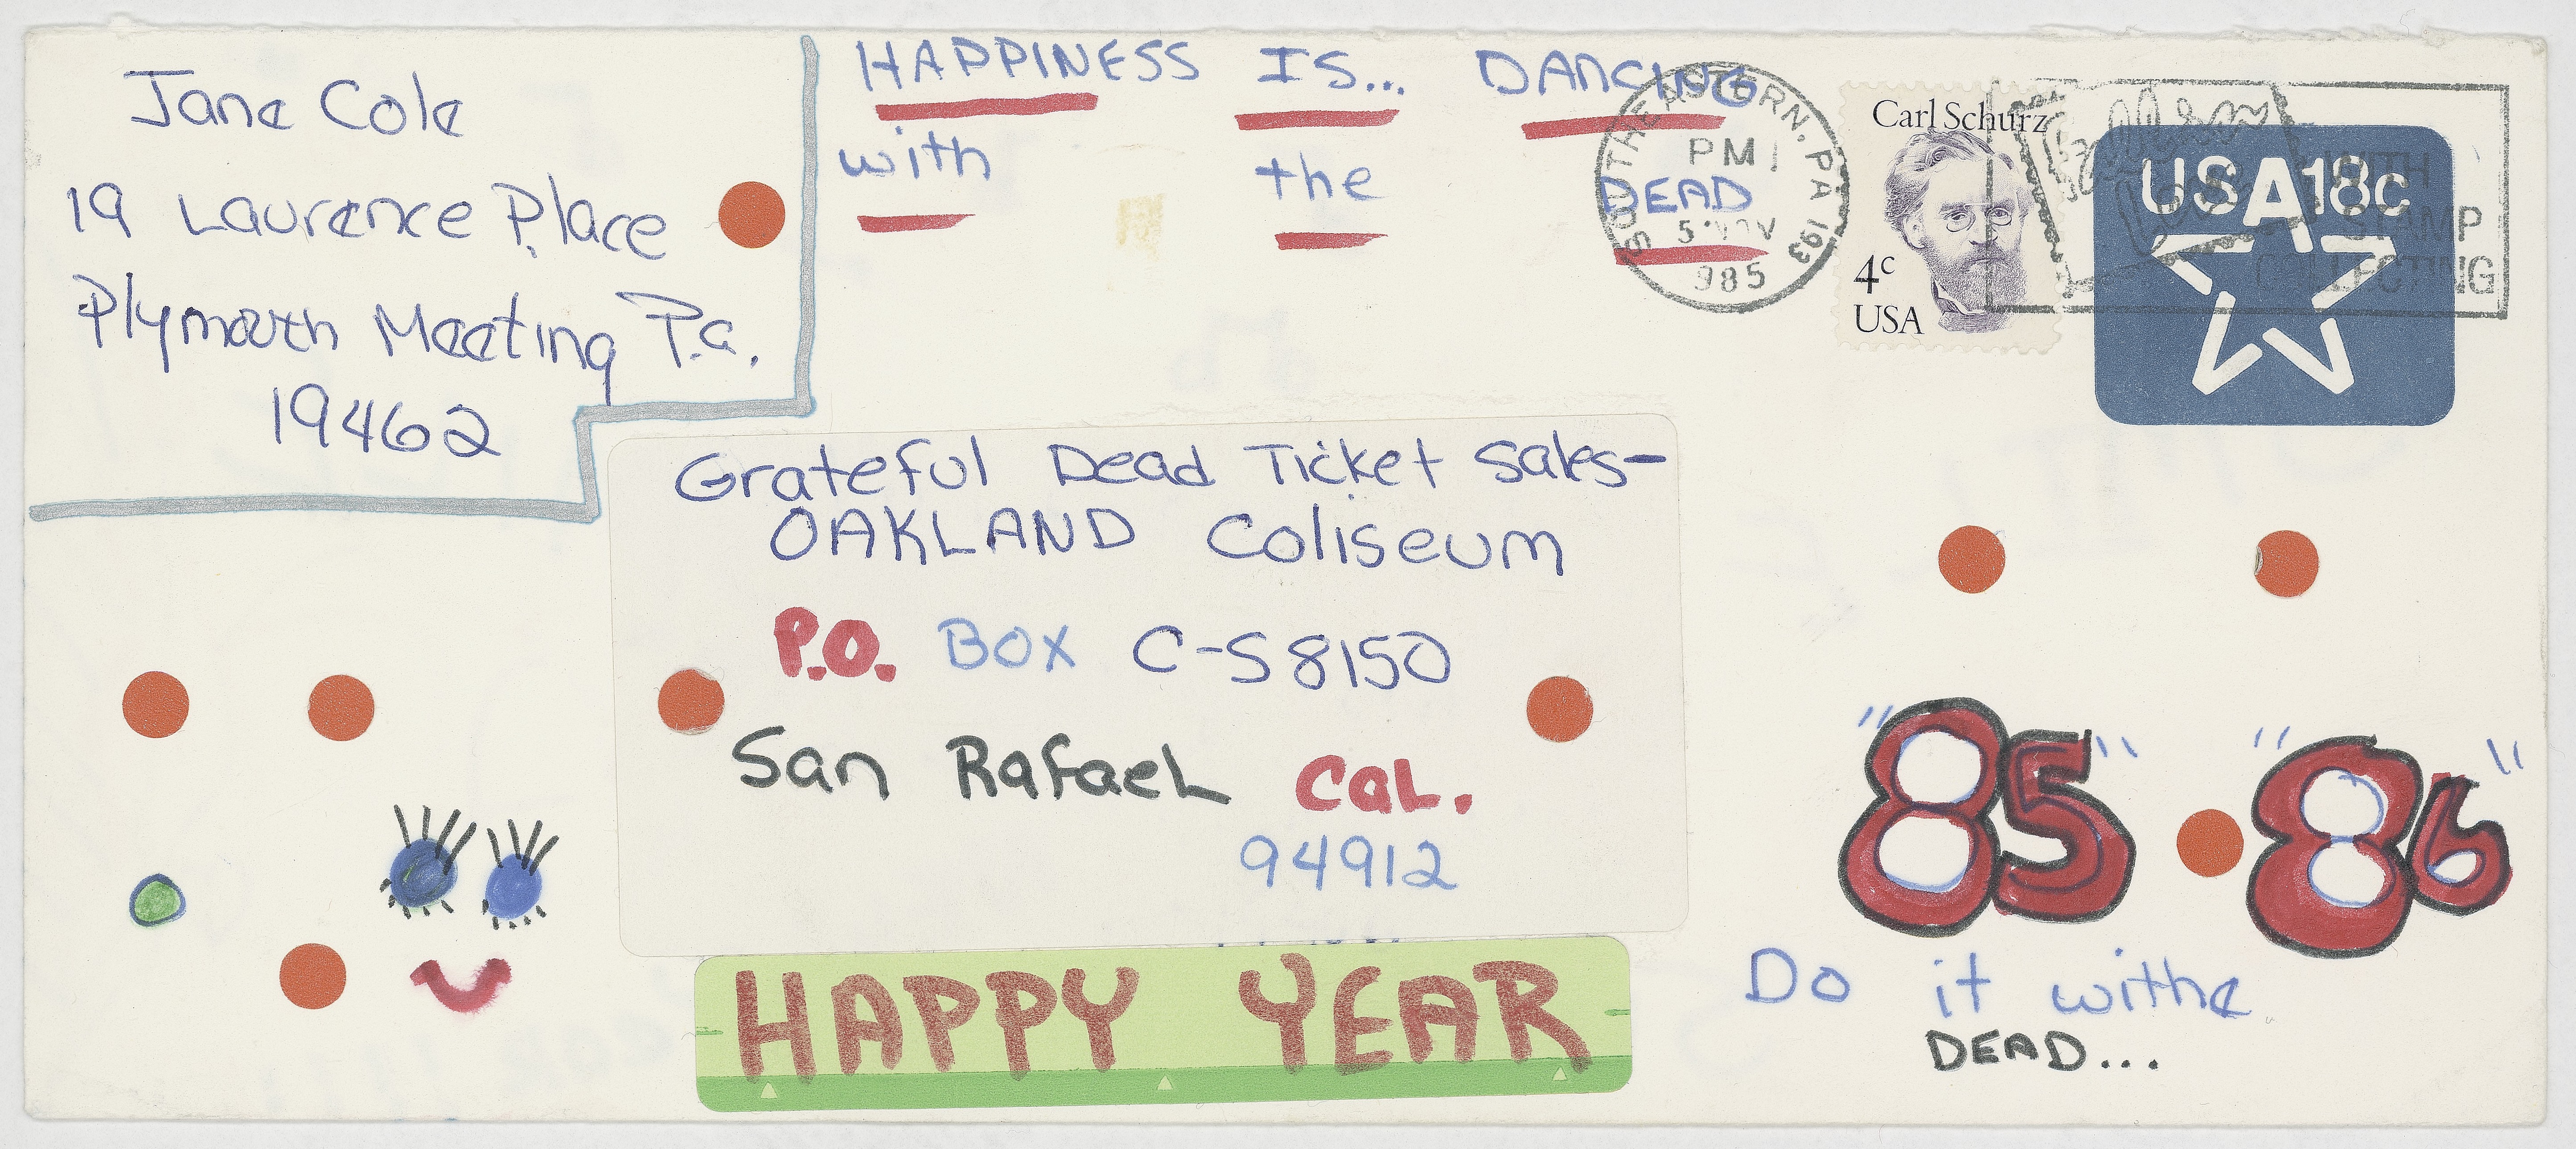 Jane Cole
19 Laurence Place
Plymouth Meeting Pa.
19462
HAPPINESS IS... DANCING
with the DEAD
SOUTHEASTERN, PA 193
PM
5 NOV
1985
Carl Schurz
4c
USA
USA 18c
WITH
STAMP
COLLECTING
Grateful Dead Ticket Sales-
OAKLAND Coliseum
P.O. BOX C-S8150
San Rafael Cal.
94912
HAPPY YEAR
"85" "86"
Do it withe
DEAD...